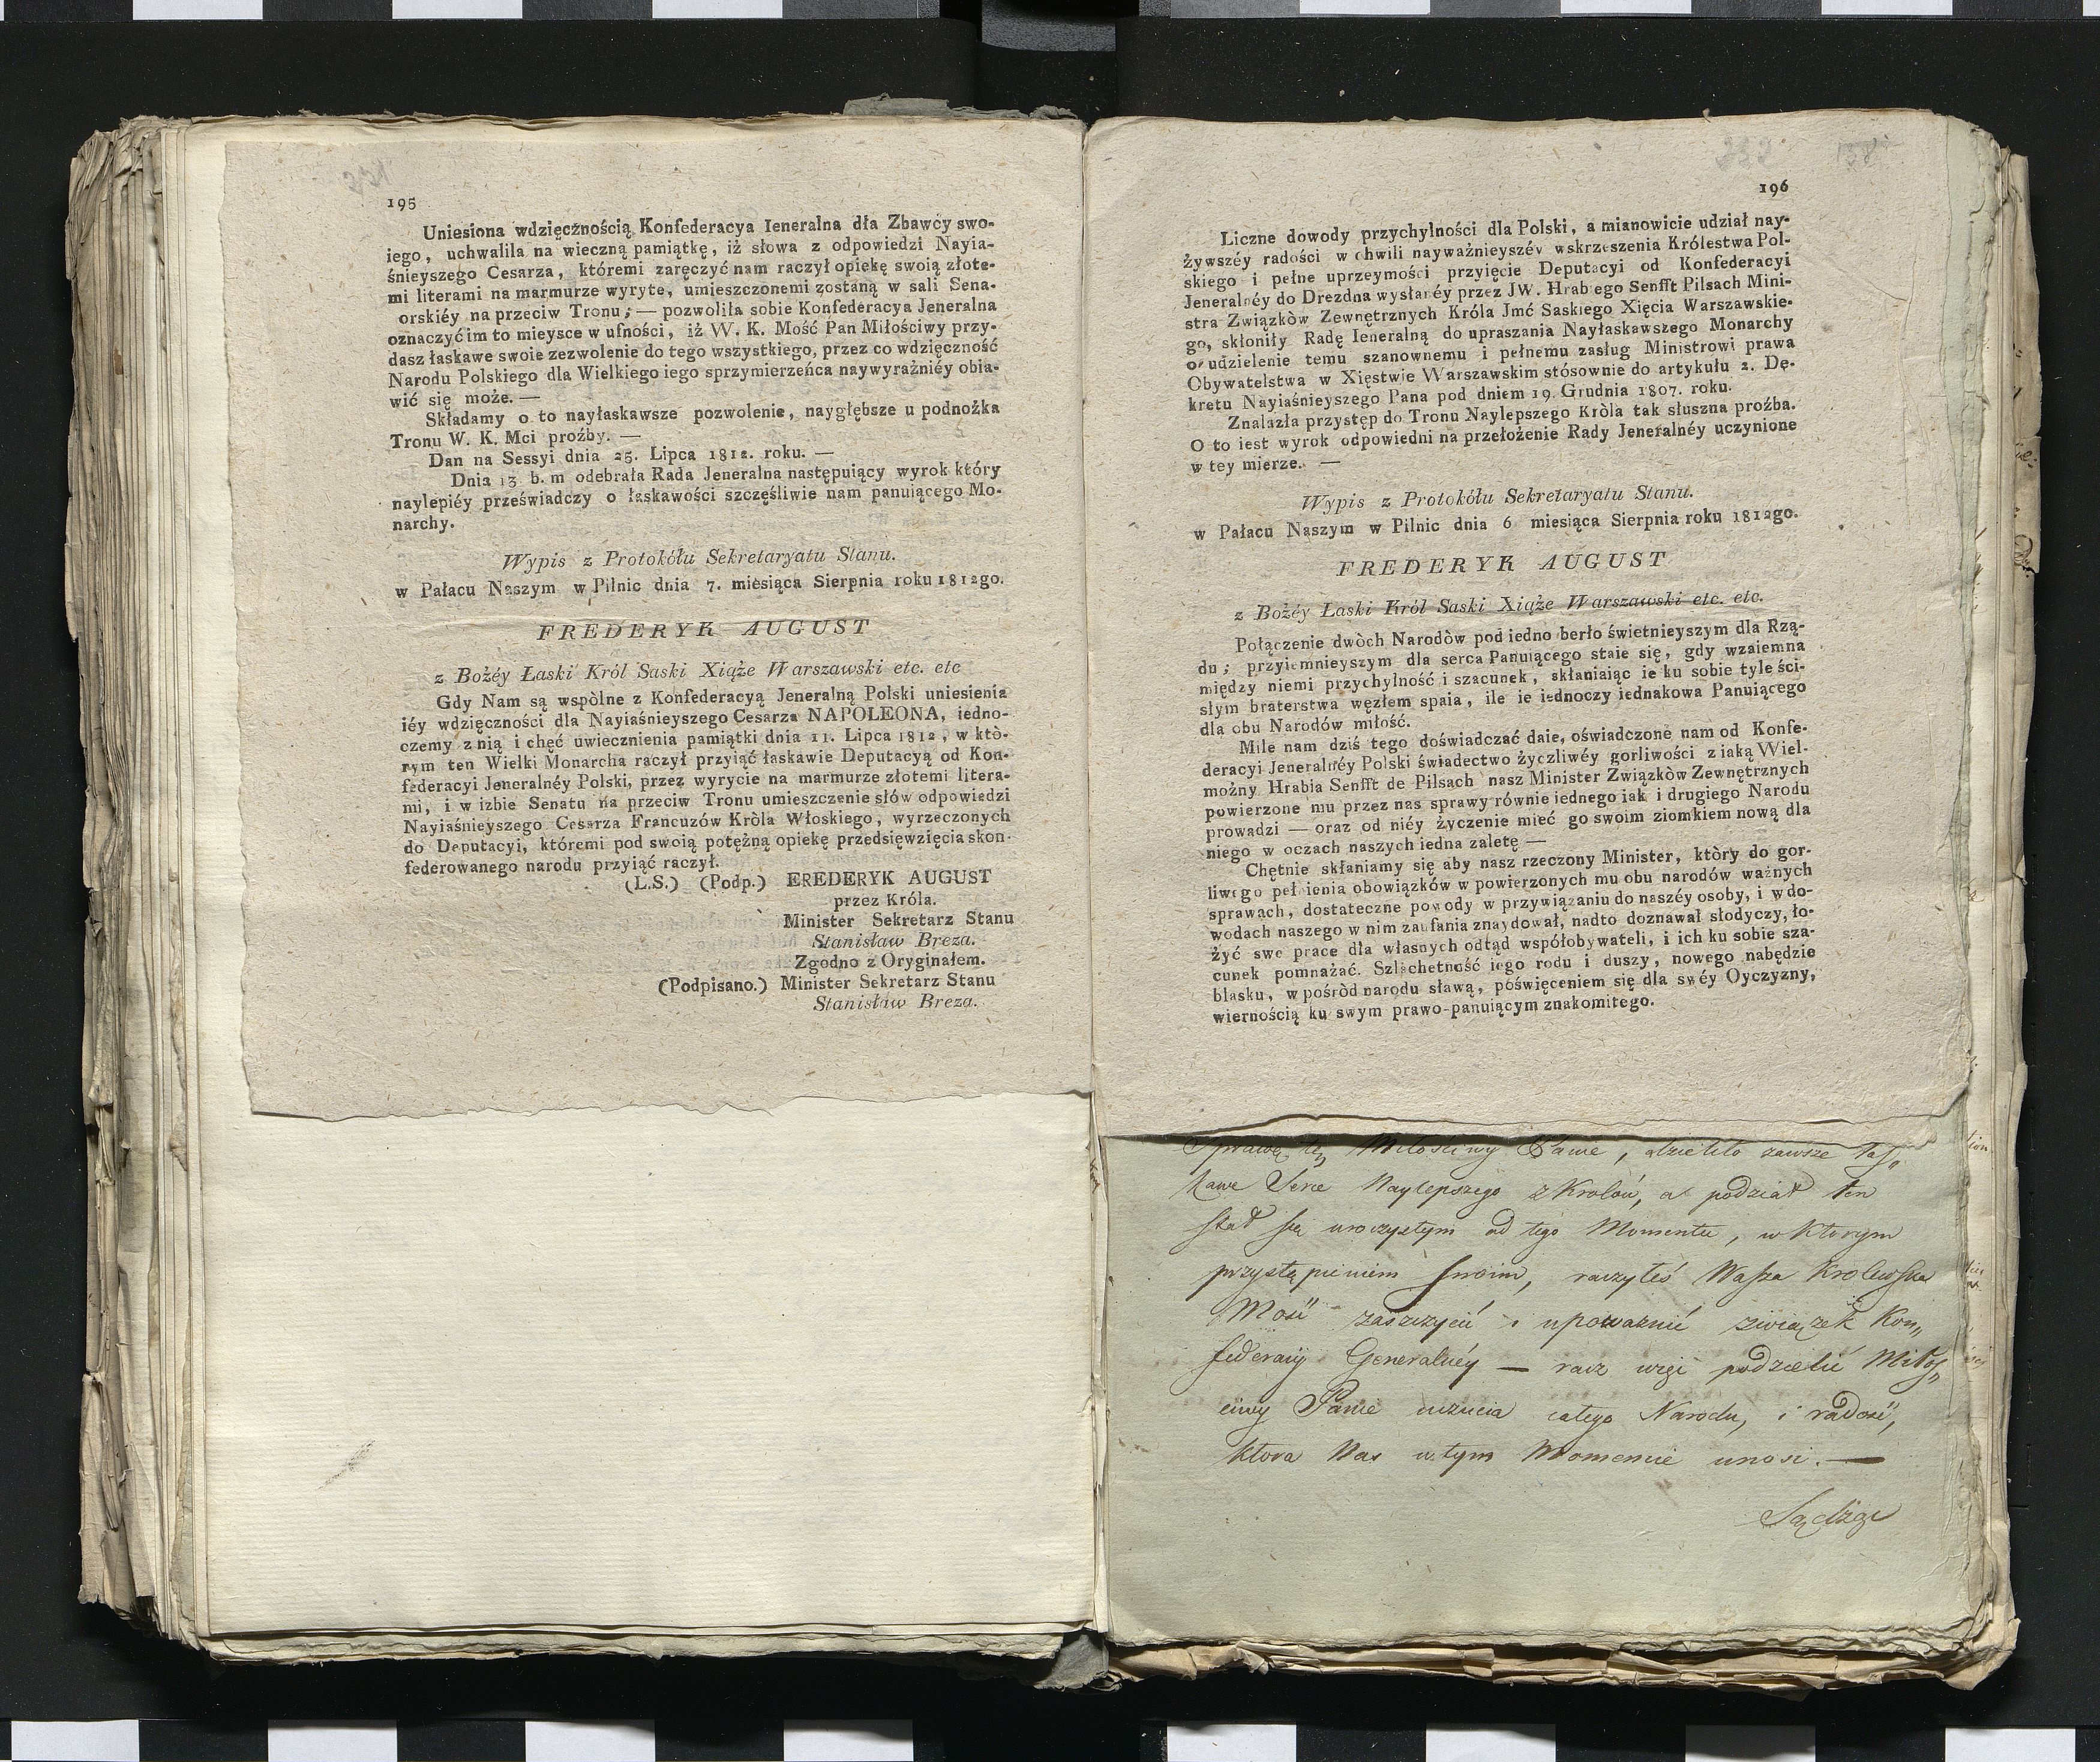 195
Uniesiona wdzięcźnością Konfederacya Ieneralna dła Zbawcy swo-
iego, uchwalila na wieczną pamiątkę, iż słowa z odpowiedzi Nayia-
śnieyszego Cesarza, któremi zaręczyć nam raczył opiekę swoią złote-
mi literami na marmurze wyryte, umieszczonemi zostaną w sali Sena-
orskiéy na przeciw Tronu; — pozwoliła sobie Konfederacya Jeneralna
oznaczyć im to mieysce w ufności, iż W. K. Mość Pan Miłościwy przy-
dasz łaskawe swoie zezwolenie do tego wszystkiego, przez co wdzięczność
Narodu Polskiego dla Wielkiego iego sprzymierzeńca naywyraźniéy obia-
wić się może. —
Składamy o to nayłaskawsze pozwolenie, naygłębsze u podnożka
Tronu W. K. Mci proźby. —
Dan na Sessyi dnia 25. Lipca 1812. roku. —
Dnia 13 b. m odebrała Rada Jeneralna następuiący wyrok który
naylepiéy przeświadczy o łaskawości szczęśliwie nam panuiącego Mo-
narchy.
Wypis z Protokółu Sekretaryatu Stanu.
w Pałacu Naszym w Pilnic dnia 7. miesiąca Sierpnia roku 1812go.
FREDERYK AUGUST
z Bożéy Łaski Król Saski Xiąże Warszawski etc. etc
Gdy Nam są wspòlne z Konfederacyą Jeneralną Polski uniesienia
iéy wdzięczności dla Nayiaśnieyszego Cesarza NAPOLEONA, iedno-
czemy z nią i chęć uwiecznienia pamiątki dnia 11. Lipca 1812, w któ-
rym ten Wielki Monarcha raczył przyiąć łaskawie Deputacyą od Kon-
federacyi Jeneralnéy Polski, przez wyrycie na marmurze złotemi litera-
mi, i w izbie Senatu na przeciw Tronu umieszczenie słów odpowiedzi
Nayiaśnieyszego Cesarza Francuzów Kròla Włoskiego, wyrzeczonych
do Deputacyi, któremi pod swoią potężną opiekę przedsięwzięcia skon-
federowanego narodu przyiąć raczył.
(L.S.) (Podp.) EREDERYK AUGUST
przez Króla.
Minister Sekretarz Stanu
Stanisław Breza.
Zgodno z Oryginałem.
(Podpisano.) Minister Sekretarz Stanu
Stanisław Breza.
196
Liczne dowody przychylności dla Polski, a mianowicie udział nay-
żywszéy radości w chwili nayważnieyszéy wskrzeszenia Królestwa Pol-
skiego i pełne uprzeymości przyięcie Deputacyi od Konfederacyi
Jeneralnéy do Drezdna wysłanéy przez JW. Hrabiego Senfft Pilsach Mini-
stra Związkòw Zewnętrznych Króla Jmć Saskiego Xięcia Warszawskie-
go, skłoniły Radę Ieneralną do upraszania Nayłaskawszego Monarchy
o udzielenie temu szanownemu i pełnemu zasług Ministrowi prawa
Obywatelstwa w Xięstwie Warszawskim stósownie do artykułu 2. De-
kretu Nayiaśnieyszego Pana pod dniem 19. Grudnia 1807. roku.
Znalazła przystęp do Tronu Naylepszego Kròla tak słuszna proźba.
O to iest wyrok odpowiedni na przełożenie Rady Jeneralnéy uczynione
w tey mierze. —
Wypis z Protokółu Sekretaryatu Stanu.
w Pałacu Naszym w Pilnic dnia 6 miesiąca Sierpnia roku 1812go.
FREDERYK AUGUST
z Bożéy Łaski Król Saski Xiąże Warszawski etc. etc.
Połączenie dwòch Narodòw pod iedno berło świetnieyszym dla Rzą-
du; przyiemnieyszym dla serca Panuiącego staie się, gdy wzaiemna
między niemi przychylność i szacunek, skłaniaiąc ie ku sobie tyle ści-
słym braterstwa węzłem spaia, ile ie iednoczy iednakowa Panuiącego
dla obu Narodów miłość.
Mile nam dziś tego doświadczać daie, oświadczone nam od Konfe-
deracyi Jeneralnéy Polski świadectwo życzliwéy gorliwości z iaką Wiel-
możny Hrabia Senfft de Pilsach nasz Minister Związkòw Zewnętrznych
powierzone mu przez nas sprawy równie iednego iak i drugiego Narodu
prowadzi — oraz od niéy życzenie mieć go swoim ziomkiem nową dla
niego w oczach naszych iedna zaletę —
Chętnie skłaniamy się aby nasz rzeczony Minister, któty do gor-
liwego pełnienia obowiązków w powierzonych mu obu narodów ważnych
sprawach, dostateczne powody w przywiązaniu do naszéy osoby, i w do-
wodach naszego w nim zaufania znaydował, nadto doznawał słodyczy, ło-
żyć swe prace dla własnych odtąd współobywateli, i ich ku sobie sza-
cunek pomnażać. Szlachetność iego rodu i duszy, nowego nabędzie
blasku, w pośród narodu sławą, poświęceniem się dla swéy Oyczyzny,
wiernością ku swym prawo-panuiącym znakomitego.
Sprawę tę Miłościwy Panie, dzieliło zawsze łas„
kawe Serce Naylepszego z Krolow, a podział ten
stał się uroczystym od tego Momentu, w ktorym
przystąpieniem swoim, raczyłeś Wasza Krolewska
Mość zaszczycić i upoważnić związek Kon„
federacyi Generalnéy — racz więc podzielić Miłoś„
ciwy Panie uczucia całego Narodu, i radość,
ktora Nas w tym Momencie unosi. —
Sądząc